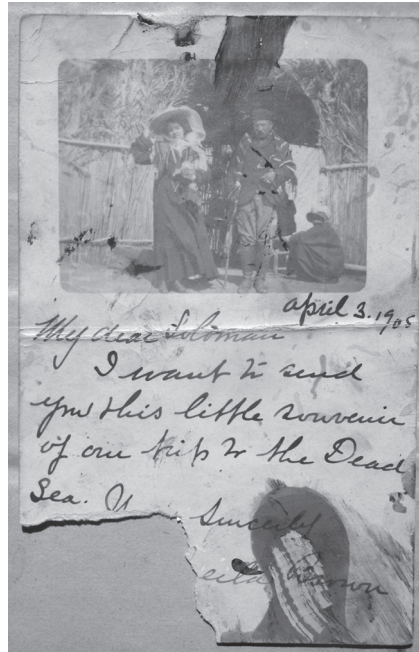 April 3. 1905
My dear Soloman
I want to send
you this little souvenir
of our trip to the Dead
Sea.
Sincerely
Brown